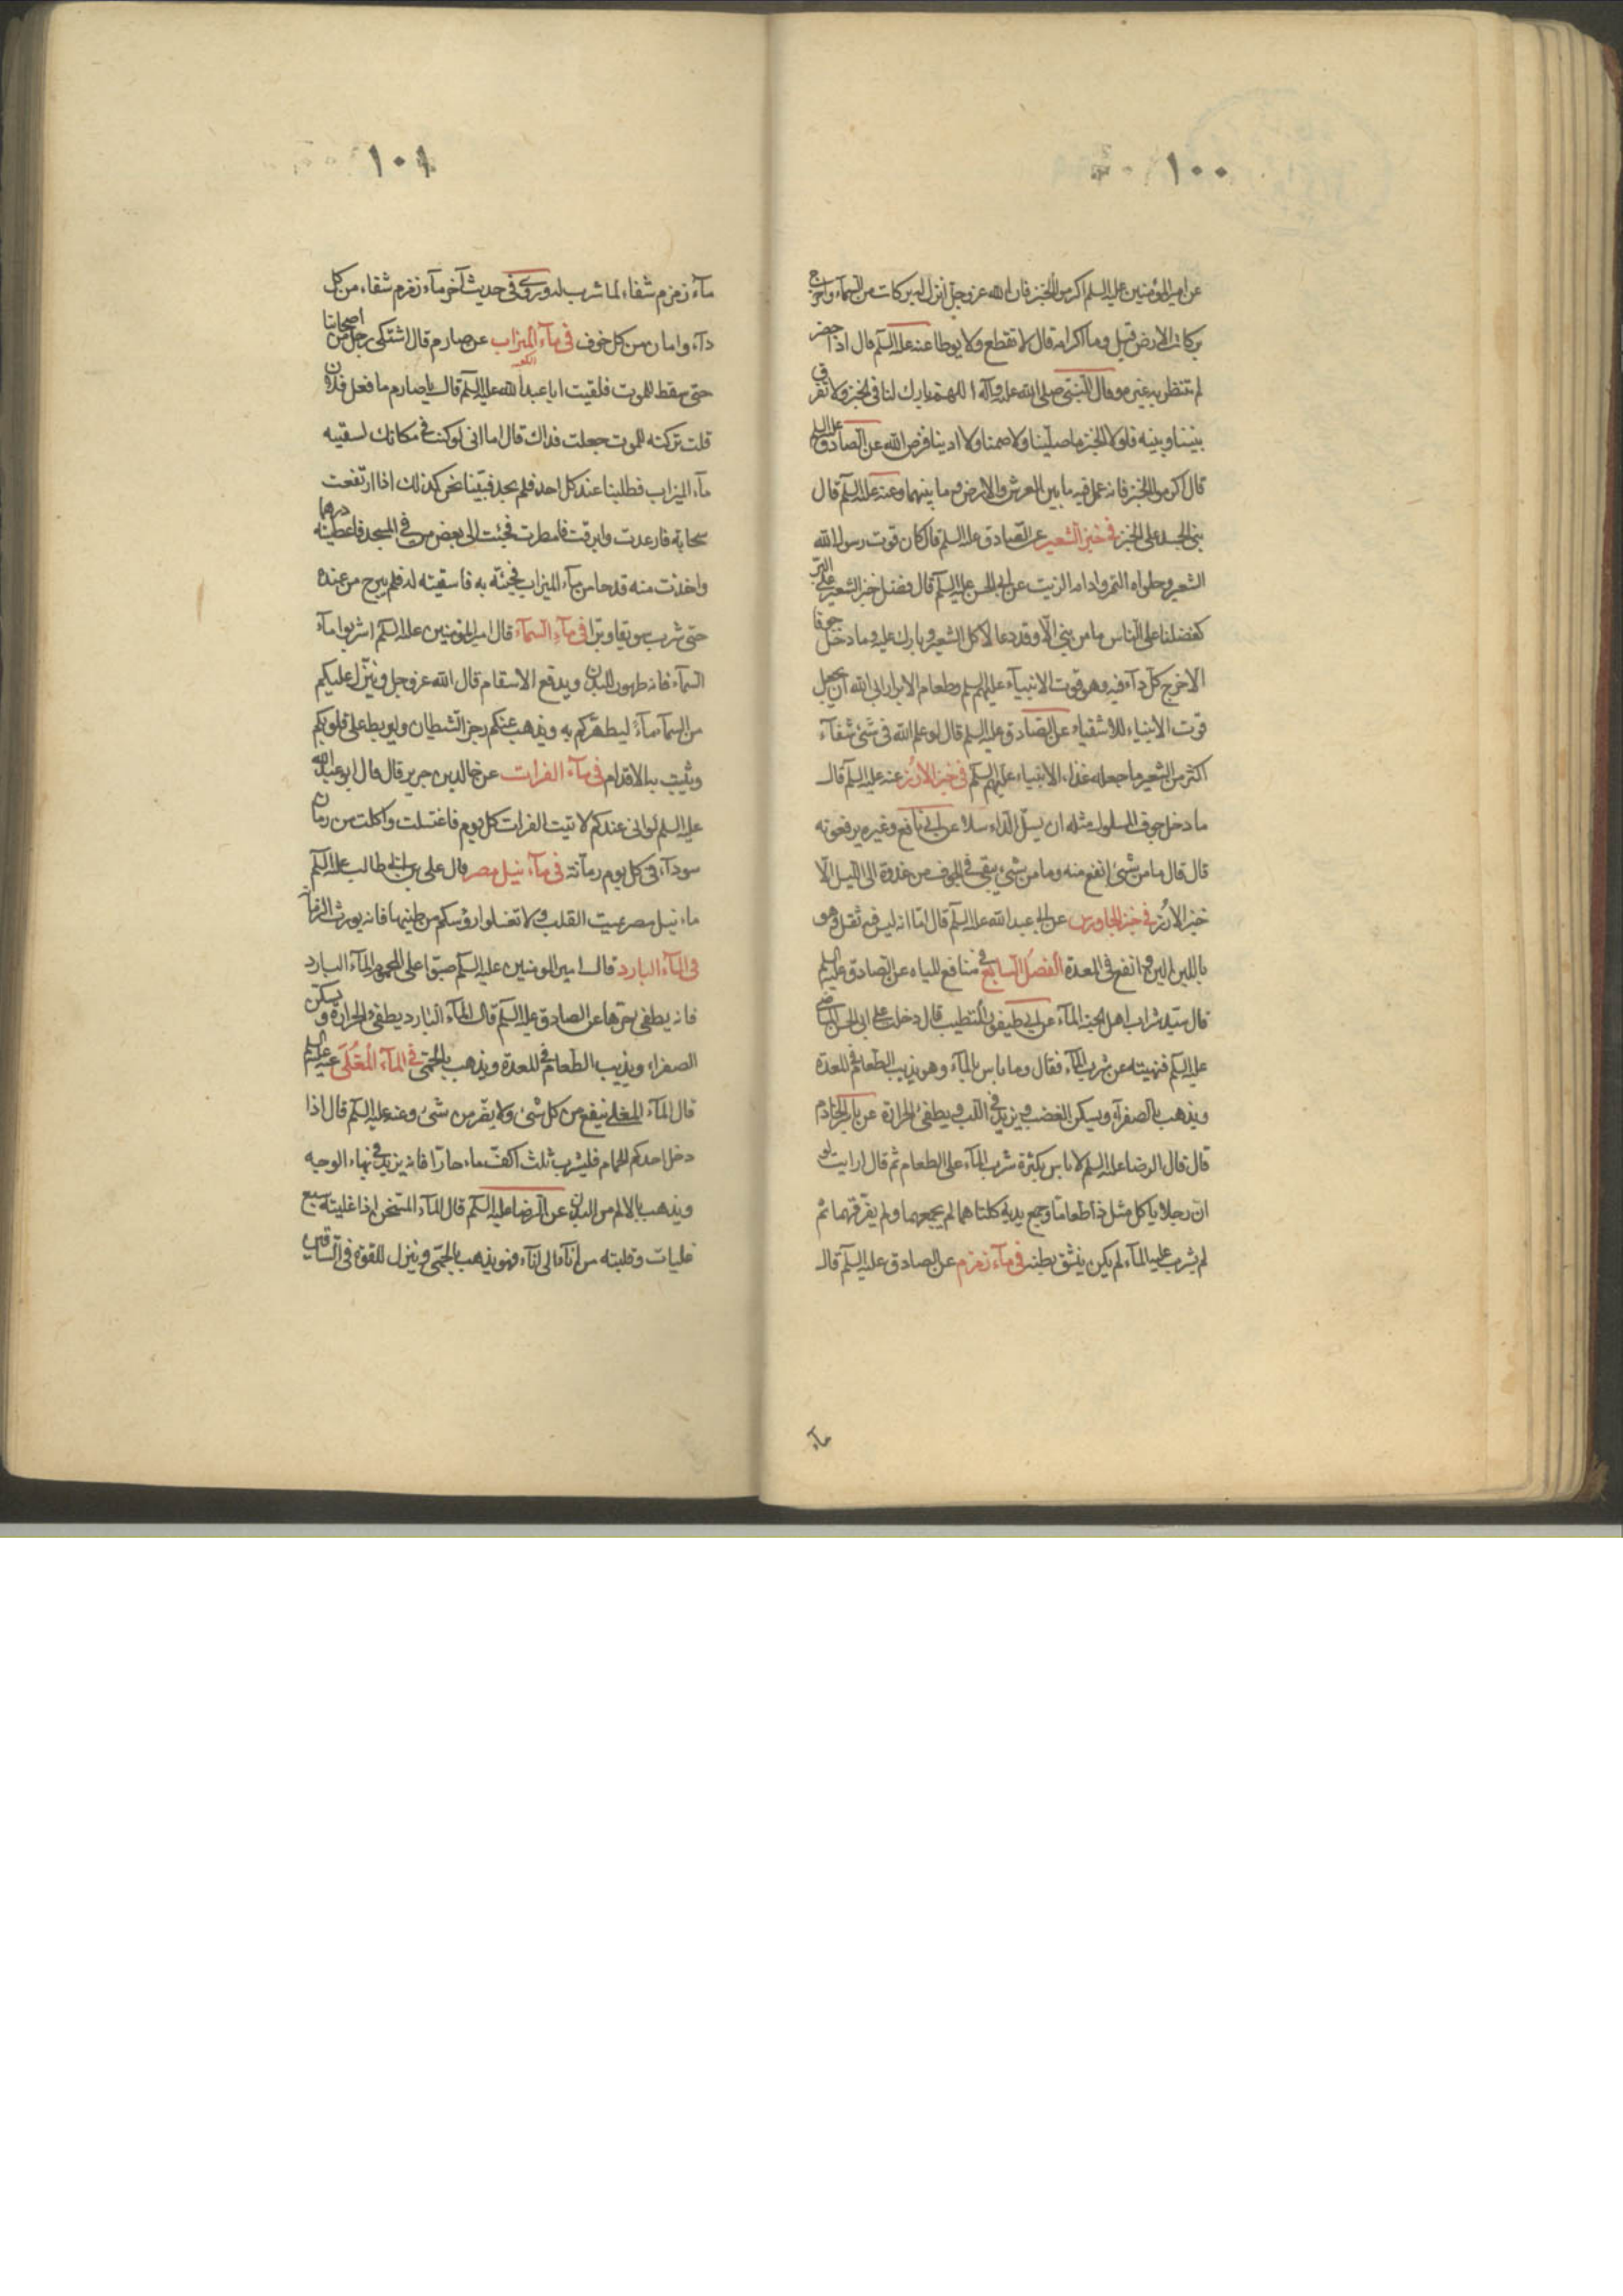 ١٠٠
عن امير المؤمنين عليه السلم اكرموا الخبز فان الله عز وجل انزل له بركات من السمآء واخرج
بركات الارض قيل وما اكرامه قال لا تقطع ولا يوطا عنه عليه السلم قال اذا حضر
لم تنتظر به غيره وقال النبى صلى الله عليه وآله اللهم بارك لنا فى الخبز ولا تفرق
بيننا وبينه فلولا الخبز ما صلينا ولا صمنا ولا ادينا فرض الله عن الصادق عليه السلم
قال اكرموا الخبز فانه عمل فيه ما بين العرش والارض وما بينهما وعنه عليه السلم قال
بنى الجسد على الخبز فى خبز الشعير عن الصادق عليه السلم قال كان قوت رسول الله
الشعير وحلواه التمر وادامه الزيت عن ابى الحسن عليه السلم قال فضل خبز الشعير على البر
كفضلنا على الناس ما من نبى الّا وقد دعا لاكل الشعير وبارك عليه وما دخل جوفا
الا خرج كل دآء فيه وهو قوت الانبيآء عليهم السلم وطعام الابرار ابى الله ان يجعل
قوت الانبياء للاشقياء عن الصادق عليه السلم قال لو علم الله فى شئ شفآء
اكثر من الشعير ما جعله غذاء الانبياء عليهم السلم فى خبز الارُز عنه عليه السلم قال
ما دخل جوف المسلول مثله ان يسلّ الدّاء سلا عن ابى نافع وغيره يرفعونه
قال قال ما من شئ انفع منه وما من شئ يبقى فى الجوف من غدوة الى الليل الّا
خبز الارُز فى خبز الجاورس عن ابى عبد الله عليه السلم قال امّا انه ليس فيه ثقل وهو
باللبن الين وانفع فى المعدة الفصل السابع فى منافع المياه عن الصادق عليه السلم
قال سيد شراب اهل الجنة المآء عن ابى طيفور المتطبب قال دخلت على ابى الحسن الماضى
عليه السلم فنهيته عن شرب المآء فقال وما باس بالمآء وهو يذيب الطعام فى المعدة
ويذهب بالصفرآء ويسكن الغضب ويزيد فى اللب ويطفئ الحرارة عن ياسر الخادم
قال قال الرضا عليه السلم لا باس بكثرة شرب المآء على الطعام ثم قال ارايت لو
ان رجلا ياكل مثل ذا طعاما وجمع يديه كلتاهما لم يجمعهما ولم يفرقهما ثم
لم يشرب عليه المآء لم يكن ينشق بطنه فى مآء زمزم عن الصادق عليه السلم قال
مآء
١٠١
مآء زمزم شفاء لما شرب له وروى فى حديث آخر مآء زمزم شفاء من كل
دآء وامان من كل خوف فى مآء الميزاب عن صارم قال اشتكى رجل من اصحابنا
حتى سقط للموت فلقيت ابا عبد الله عليه السلم قال يا صارم ما فعل فلان
قلت تركته للموت جعلت فداك قال اما انى لو كنت فى مكانك لسقيته
مآء الميزاب فطلبنا عند كل احد فلم نجد فبقينا نحن كذلك اذا ارتفعت
سحابة فارعدت وابرقت فامطرت فجئت الى بعض من فى المسجد فاعطيته درهما
واخذت منه قدحا من مآء الميزاب فجئته به فاسقيته له فلم يبرح من عنده
حتى شرب سويقا وبرا فى مآء السمآء قال امير المؤمنين عليه السلم اشربوا مآء
السمآء فانه طهور للبدن ويدفع الاسقام قال الله عز وجل وينزّل عليكم
من السمآء مآءً ليطهّركم به ويذهب عنكم رجز الشيطان وليربط على قلوبكم
ويثبت به الاقدام فى مآء الفرات عن خالد بن جرير قال قال ابو عبد الله
عليه السلم لو انى عندكم لاتيت الفرات كل يوم فاغتسلت واكلت من رمان
سودآء فى كل يوم رمآنة فى مآء نيل مصر قال على بن ابى طالب عليه السلم
ماء نيل مصر يميت القلب ولا تغسلوا رؤسكم من طينها فانه يورث الزمانة
فى المآء البارد قال امير المومنين عليه السلم صبّوا على المحموم المآء البارد
فانه يطفى حرّها عن الصادق عليه السلم قال المآء البارد يطفى الحرارة ويسكن
الصفراء ويذيب الطعام فى المعدة ويذهب بالحمّى فى المآء المُغْلَى عنه عليه السلم
قال المآء المغلى ينفع من كل شئ ولا يضر من شئ وعنه عليه السلم قال اذا
دخل احدكم الحمام فليشرب ثلث اكفّ ماء حارّا فانه يزيد فى بهاء الوجه
ويذهب بالالم من البدن عن الرضا عليه السلم قال المآء المسخن اذا غليته سبع
غليات وقلبته من انآء الى انآء فهو يذهب بالحمّى وينزل القوة فى الساقين